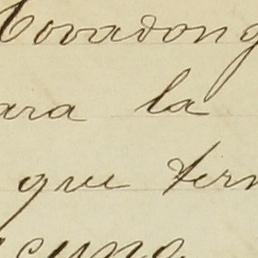 Covadong
ara la
que tern
cuna